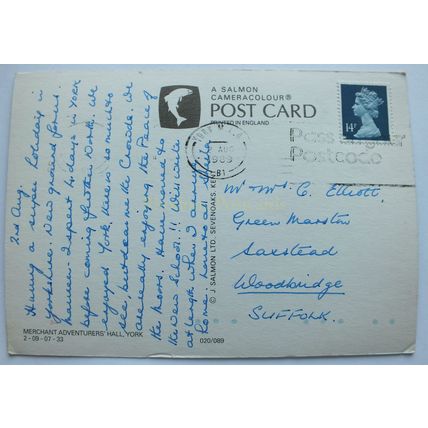 A SALMON
CAMERACOLOUR®
POST CARD
PRINTED IN ENGLAND
YORK
AUG
1989
B1
Pass
Postcode
14P
2nd Aug.
Having a super holiday in
Yorkshire. New ground for us.
I spent 4 days in York
before coming further North. We
enjoyed York there is so much to
see, but
the Crowds. We
are really enjoying the Peace of
the Moors. Have
the New School!! Will write
at length when I arrive
home. Love to all
Mr. Mrs. C. Elliott,
Green Marston
Saxstead
Woodbridge
SUFFOLK.
© J. SALMON LTD. SEVENOAKS KENT
MERCHANT ADVENTURERS' HALL, YORK
2 - 09 - 07 - 33
020/089